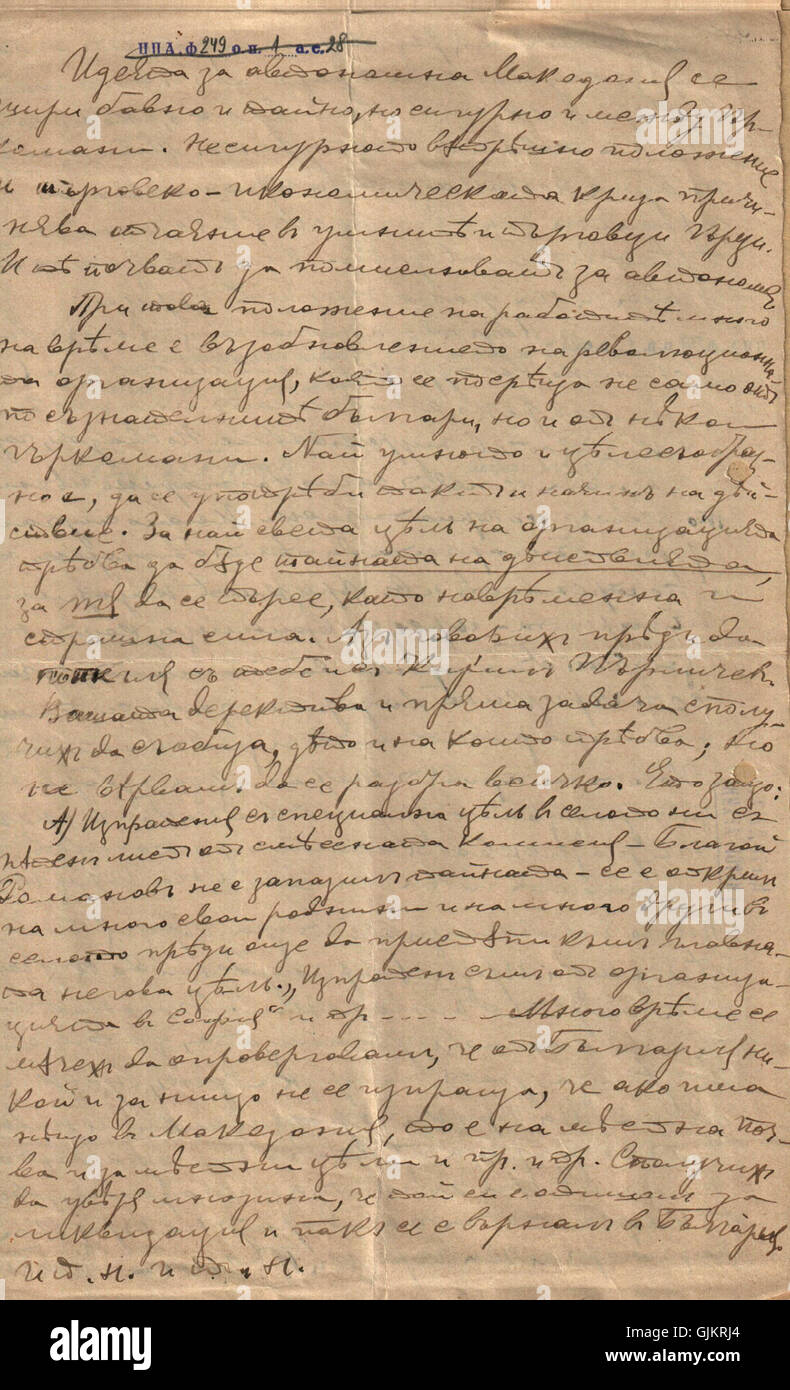 ЦПА. ф 249 о.п. 1 а.е. 28
Идеята за автономна Македония се
шири бавно и тайно, но сигурно и между гър-
комани. Несигурното вѫтрѣшно положение
и търговско-икономическата криза причи-
нява отчаяние в умните и търговци гърци.
И тѣ почватъ да помислюватъ за автономия
При това положение на работитѣ много
на врѣме е възобновлението на революционна-
та организация, която се посрѣща не само отъ
по съзнателнитѣ българи, но и от нѣкои
гъркомани. Най умното и цѣлесъобраз-
но е, да се употрѣби такъв и начинъ на дѣй-
ствие. За най света цѣль на организацията
трѣбва да бѫде тайната на дѣйствията,
за тя да се търсе, като наврѣменна и
страшна сила. Аз говорихъ прѣди да
тръгна съ тебе и с Кирилъ Пърличев.
Вашата деректива и пряма задача сполу-
чихъ да съобщя, дѣто и на които трѣбва, но
не вѣрвам да се разбра всичко. Ето защо:
А) Изпратения съ специална цѣль в селото ни съ
листъ от смѣсената комисия – Благой
Романовъ не е запазилъ тайната – се е открил
на много свои роднини и на много други въ
селото прѣди още да пристѫпи към главна-
та негова цѣль. „Изпратен съм от организа-
цията в София" и др – – – – Много врѣме се
мѫчехъ да опровергавам, че от България ни-
кой и за нищо не се изпраща, че ако има
нѣщо в Македония, то е на мѣстна поч-
ва и за мѣстни цѣли и пр. и др. Сполучихъ
да увѣря мнозина, че той си е дошъл за
ликвидация и пакъ се е върналъ в България
и т. н. и т. н.
alamy
Image ID: GJKRJ4
www.alamy.com